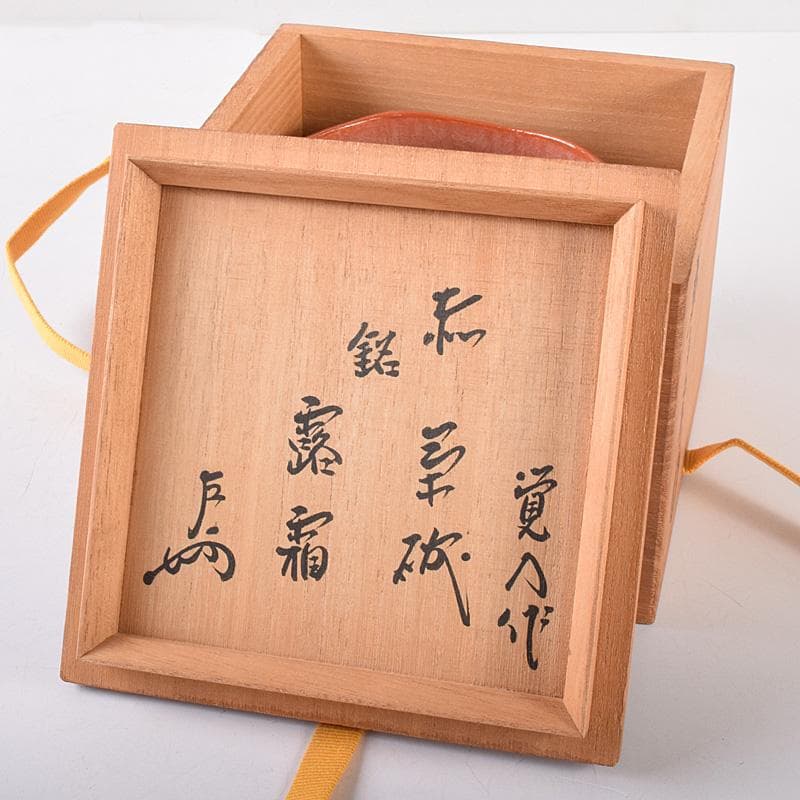 覚入作
赤茶碗
銘
露霜